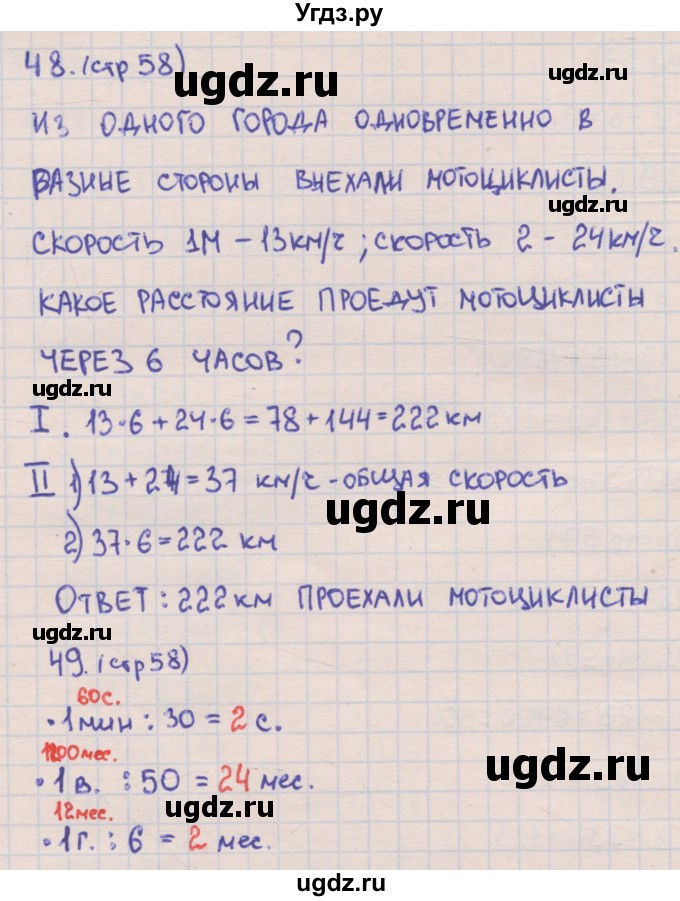 Угдз.ру
48. (стр 58)
ugdz.ru
ugdz.ru
ИЗ ОДНОГО ГОРОДА ОДНОВРЕМЕННО В
РАЗНЫЕ СТОРОНЫ ВЫЕХАЛИ МОТОЦИКЛИСТЫ.
ugdz.ru
СКОРОСТЬ 1М - 13 КМ/Ч; СКОРОСТЬ 2 - 24 КМ/Ч.
КАКОЕ РАССТОЯНИЕ ПРОЕДУТ МОТОЦИКЛИСТЫ
ЧЕРЕЗ 6 ЧАСОВ?
ugdz.ru
I. 13·6 + 24·6 = 78 + 144 = 222 КМ
II 1) 13 + 24 = 37 КМ/Ч - ОБЩАЯ СКОРОСТЬ
ugdz.ru
2) 37·6 = 222 КМ
ОТВЕТ: 222 КМ ПРОЕХАЛИ МОТОЦИКЛИСТЫ
ugdz.ru
ugdz.ru
49. (стр 58)
60с.
·1 мин : 30 = 2 с.
1200 мес.
·1 в. : 50 = 24 мес.
ugdz.ru
ugdz.ru
12 мес.
·1 г. : 6 = 2 мес.
ugdz.ru